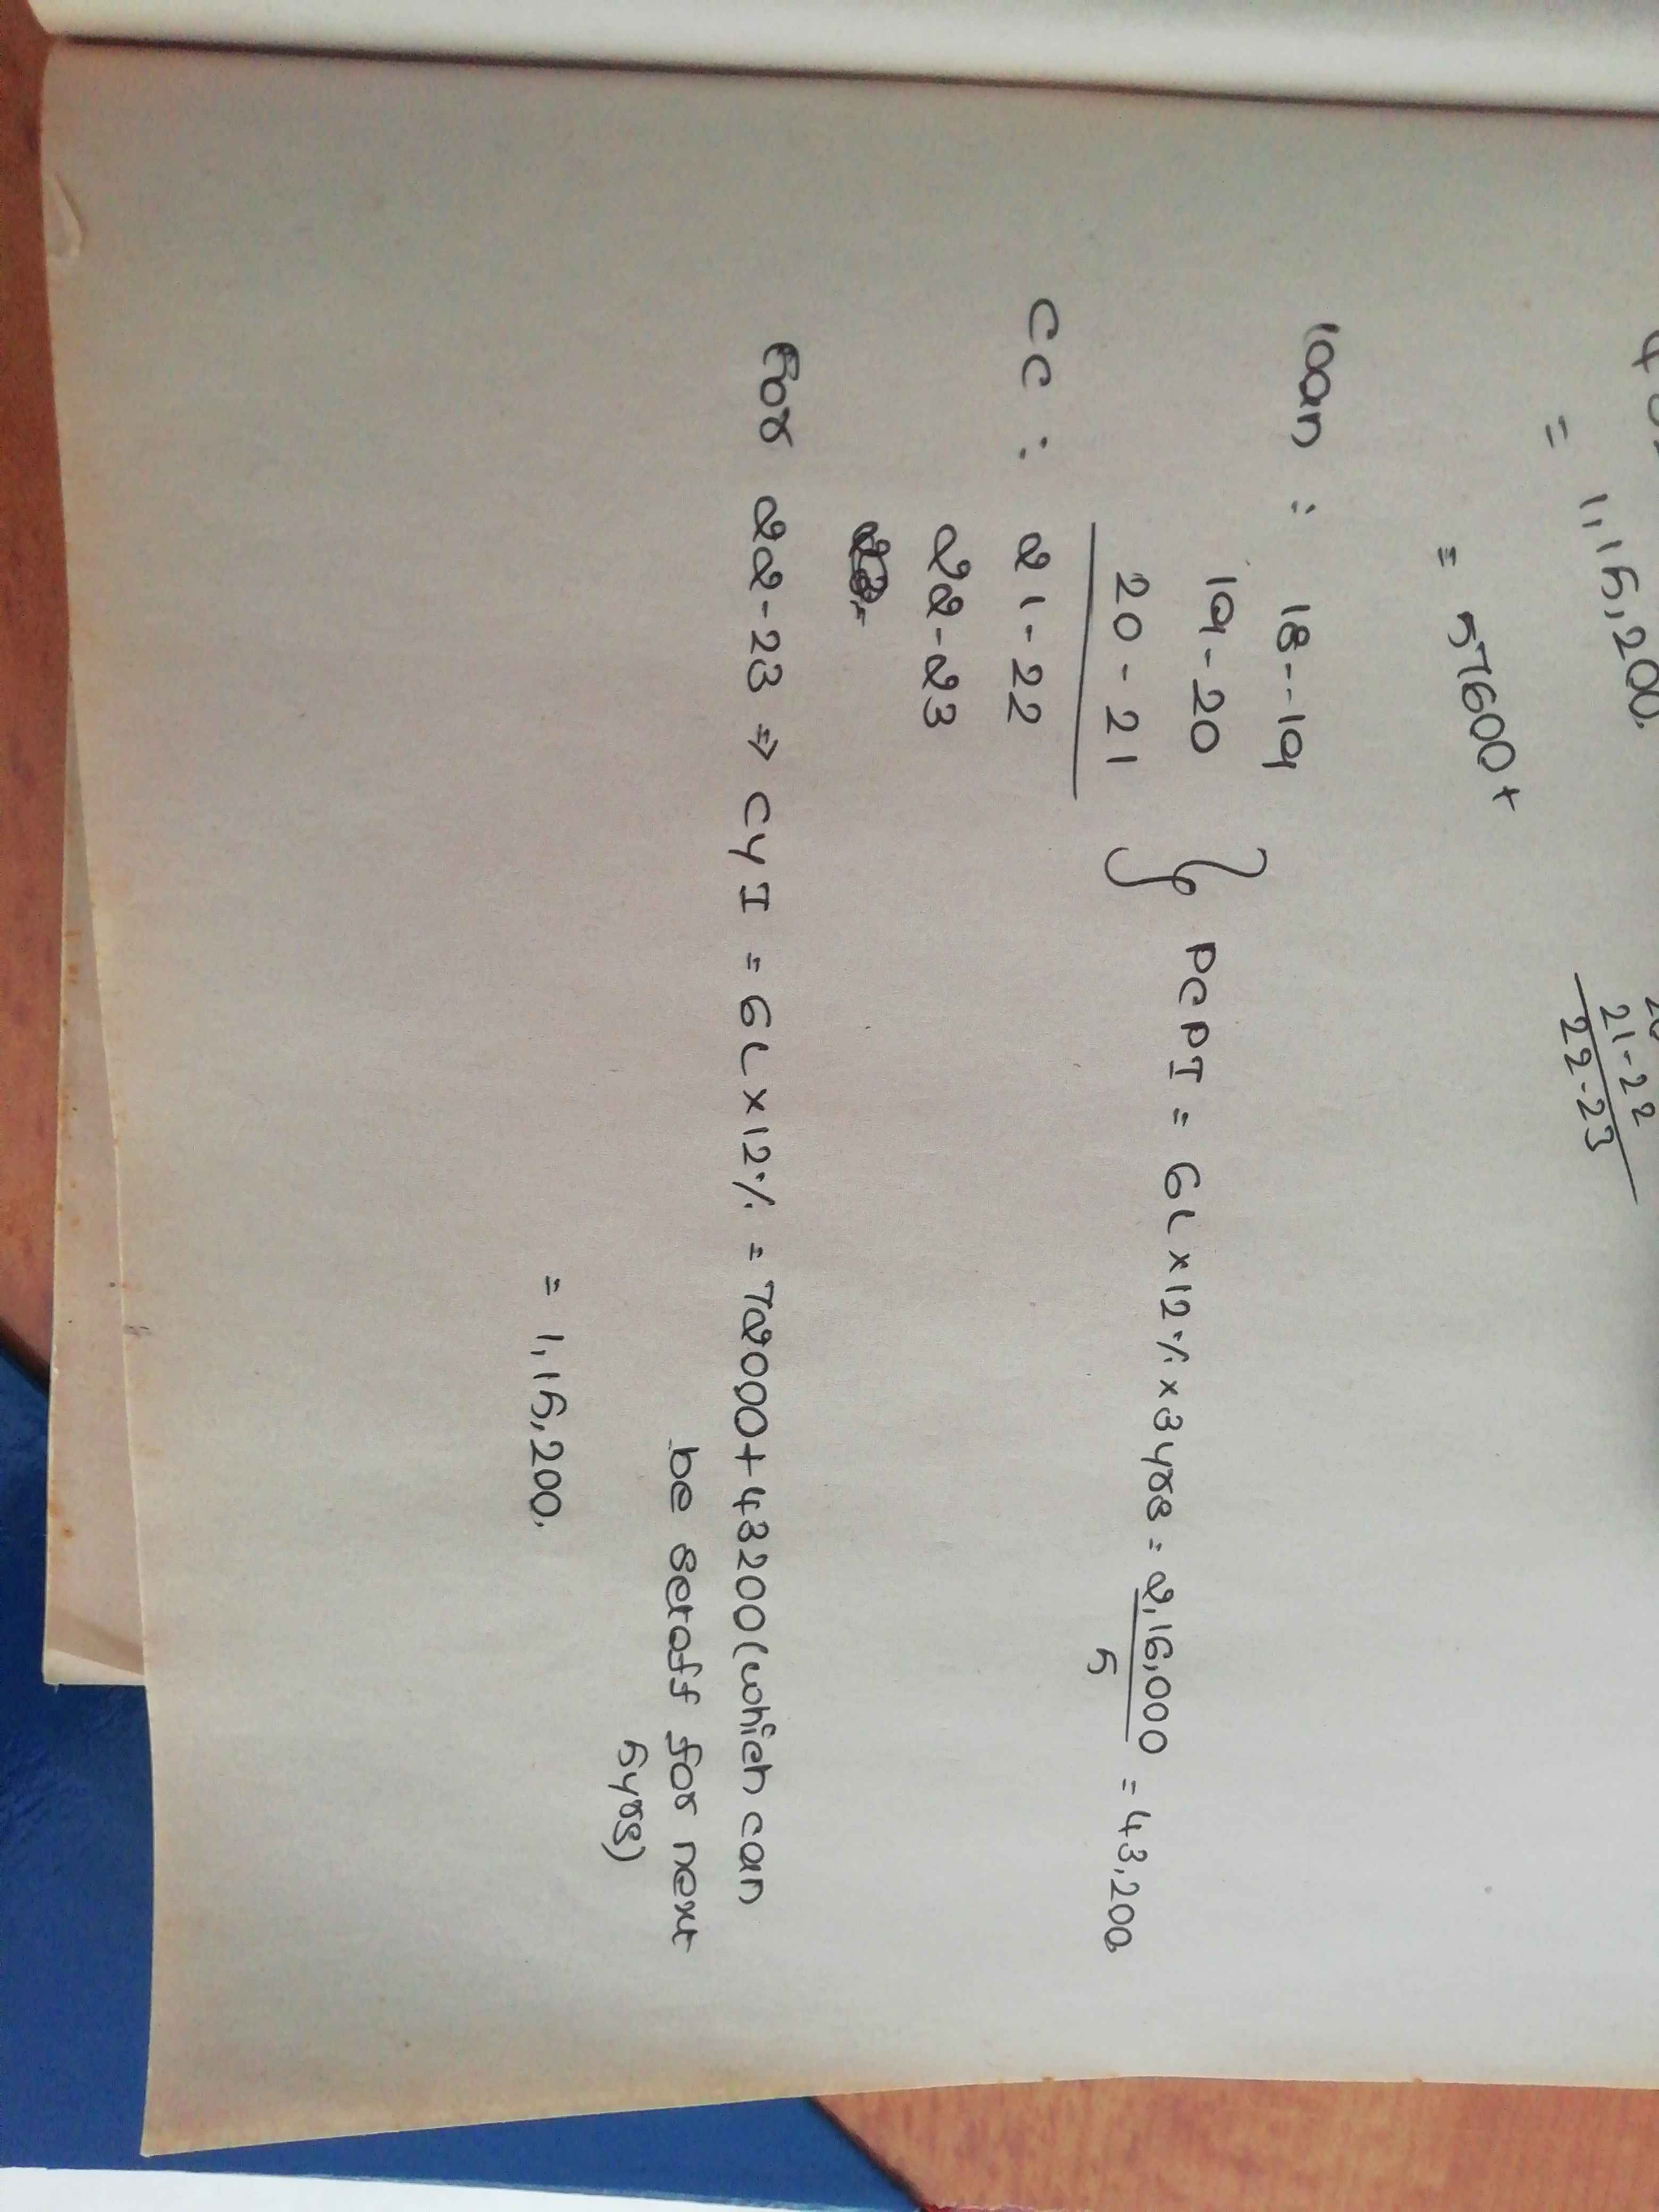 = 1,15,200.
21-22
22-23
= 57600+
loan : 18--19
19-20
20-21
PCPI = 6L×12%×3yrs = 2,16,000 = 43,200
5
CC : 21-22
22-23
For 22-23 ⇒ CYI = 6L×12% = 72000+43200(which can
be setoff for next
5yrs)
= 1,15,200.